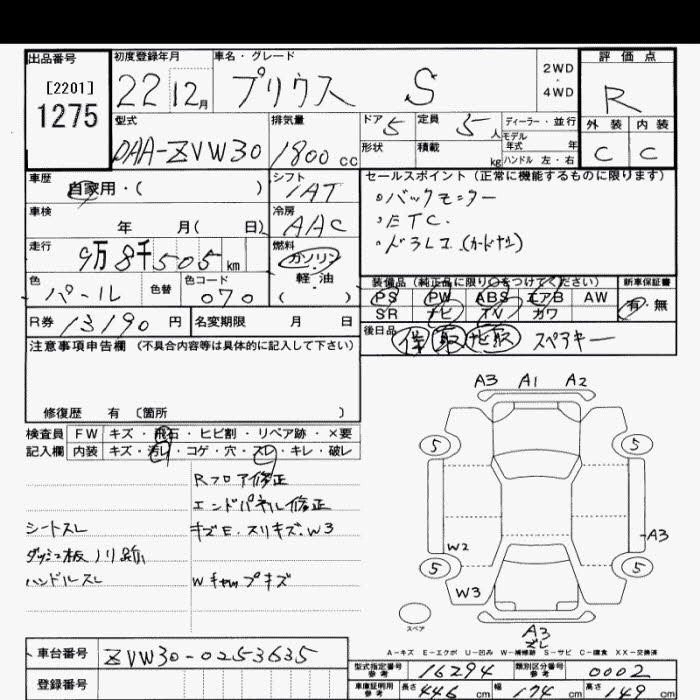 出品番号
[2201]
1275
初度登録年月
22 12月
車名・グレード
プリウス S
2WD
・
4WD
評価点
R
外装 内装
C C
型式
DAA-ZVW30
排気量
1800 cc
ドア 5
定員 5人
形状
積載 kg
ディーラー・並行
モデル年式 年
ハンドル 左・右
車歴
自家用・( )
シフト
IAT
車検
年 月( 日)
冷房
AAC
走行
9万8千505km
燃料
ガソリン
軽・油
( )
色
パール
色替
色コード
070
セールスポイント(正常に機能するものに限ります)
。バックモニター
。ETC.
装備品(純正品に限り○をつけてください)
PS PW ABS エアB AW
SR ナビ TV カワ
新車保証書
有・無
R券 13190円
名変期限 月 日
後日品
保 取 スペアキー
注意事項申告欄(不具合内容等は具体的に記入して下さい)
修復歴 有 〔箇所 〕
検査員 FW キズ・飛石・ヒビ割・リペア跡・×要
記入欄 内装 キズ・汚レ・コゲ・穴・スレ・キレ・破レ
Rフロア修正
エンドパネル修正
シートスレ
キズE.スリキズ.W3
ハンドルスレ
A3 A1 A2
5 5
W2
A3
5 5
W3
スペア
A3
A-キズ E-エクボ U-凹み W-補修跡 S-サビ C-腐食 XX-交換済
車台番号 ZVW30-0253635
登録番号
型式指定番号 参考 16294
類別区分番号 参考 0002
車庫証明用 参考 長さ 446 cm 幅 174 cm 高さ 149 cm